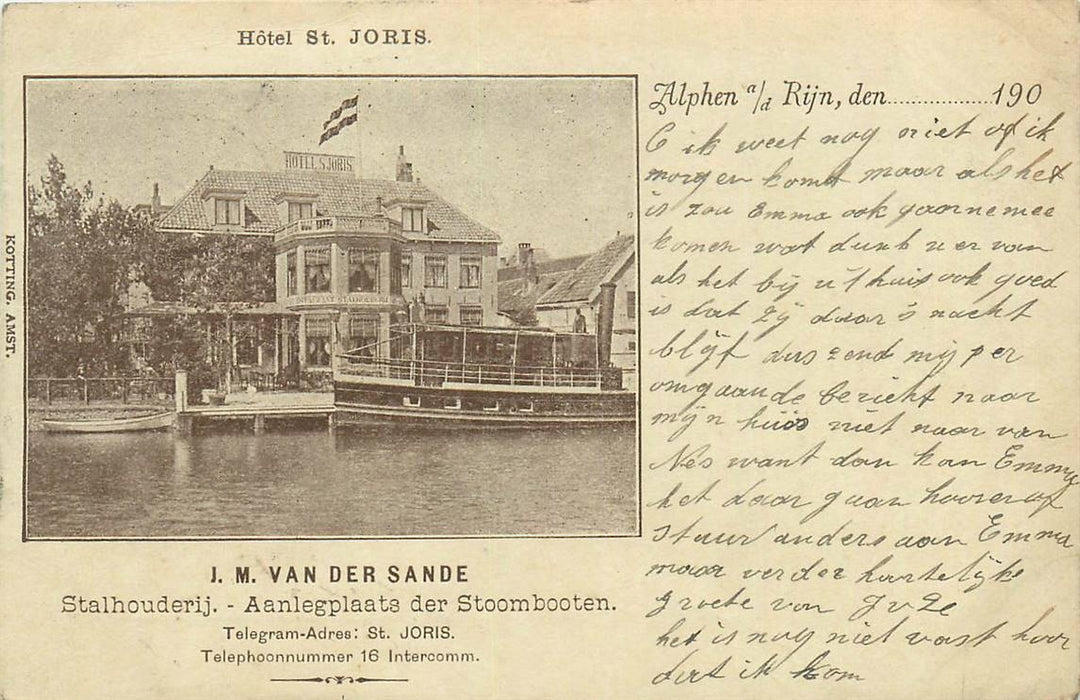 Hôtel St. JORIS.
HOTEL S. JORIS
RESTAURANT STALHOUDERIJ
KOTTING, AMST.
J. M. VAN DER SANDE
Stalhouderij. - Aanlegplaats der Stoombooten.
Telegram-Adres: St. JORIS.
Telephoonnummer 16 Intercomm.
Alphen a/d Rijn, den..................190
ik weet nog niet of ik
morgen komt maar als het
is zou Emma ook gaarne mee
komen wat dunk u er van
als het bij u thuis ook goed
is dat zij daar s nacht
blijf dus zend mij per
omgaande bericht naar
mijn huis niet naar van
Nes want dan kan Emma
het daar gaan hooren of
stuur anders aan Emma
maar verder hartelijke
groete van
het is nog niet vast hoor
dat ik kom